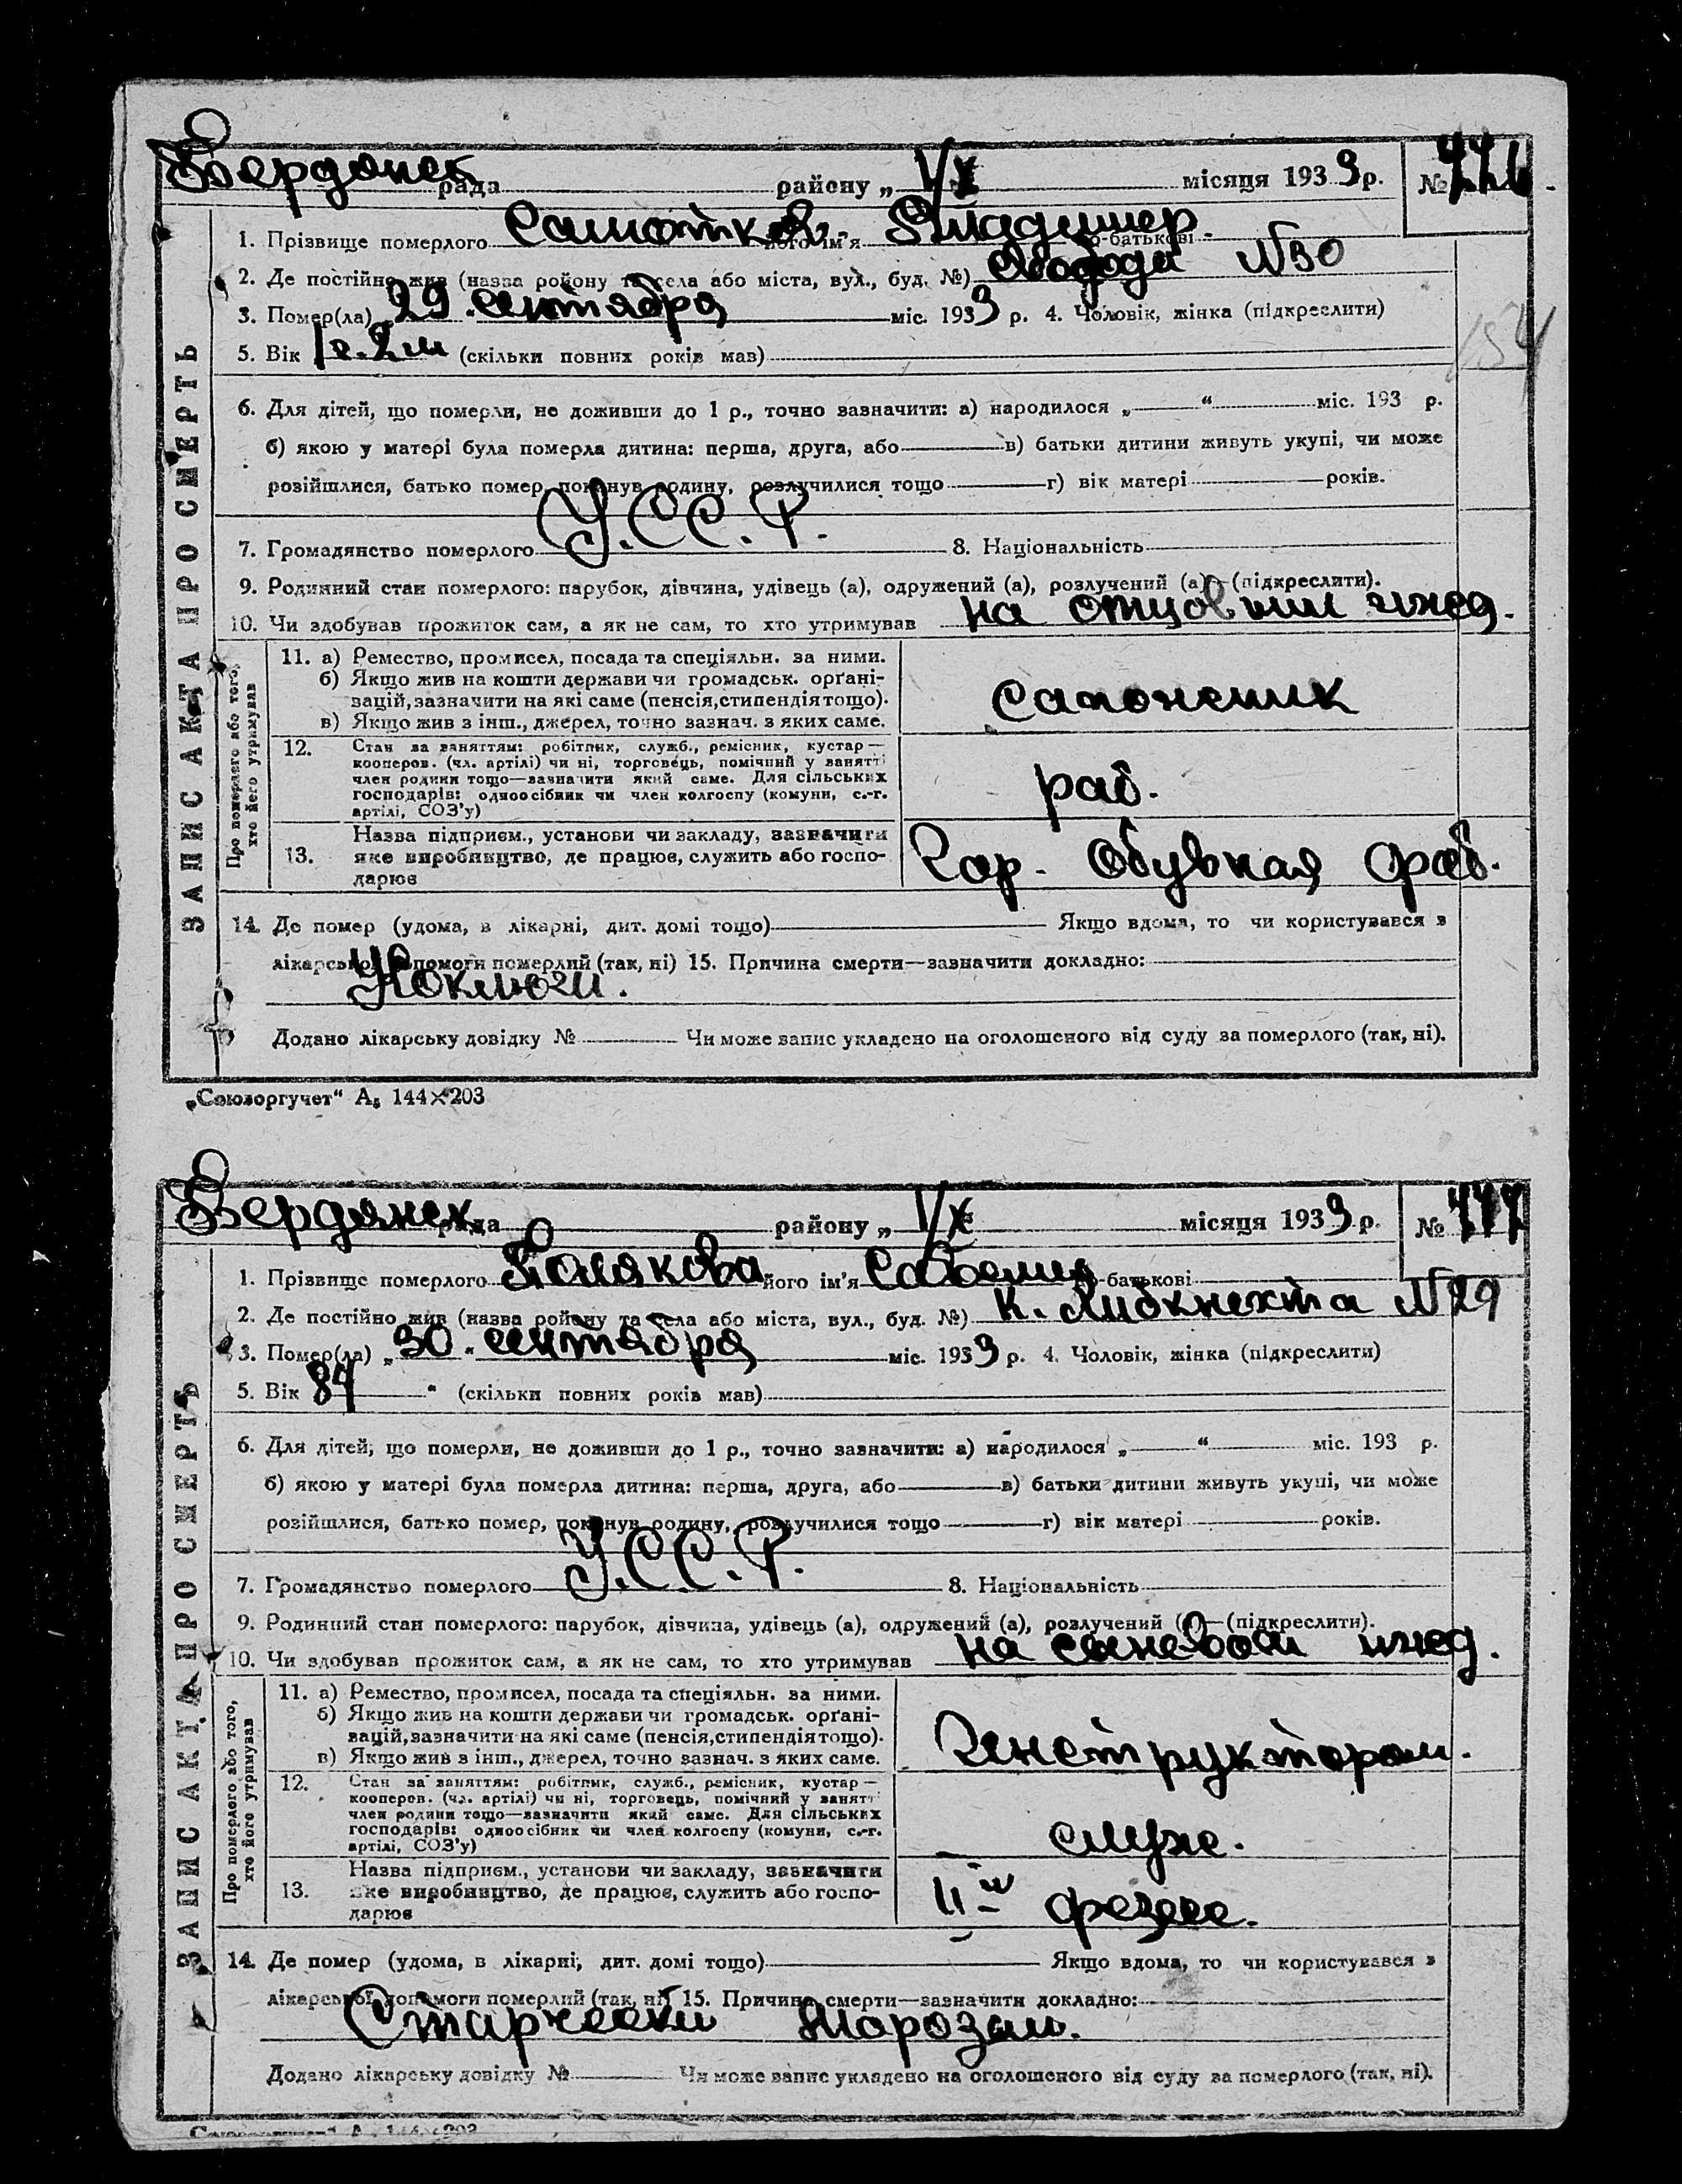 Бердянск рада району „ 1/X місяця 1933 р. №
1. Прізвище померлого його ім'я Владимер по-батькові
2. Де постійно жив (назва району та села або міста, вул., буд. №) Свободи №30
3. Помер(ла) „29" сентября міс. 1933 р. 4. Чоловік, жінка (підкреслити)
5. Вік 1 г. 2 м (скільки повних років мав)
6. Для дітей, що померли, не доживши до 1 р., точно зазначити: а) народилося „ " міс. 193 р.
б) якою у матері була померла дитина: перша, друга, або в) батьки дитини живуть укупі, чи може
розійшлися, батько помер, покинув родину, розлучилися тощо г) вік матері років.
7. Громадянство померлого У.С.С.Р. 8. Національність
9. Родинний стан померлого: парубок, дівчина, удівець (а), одружений (а), розлучений (а)—(підкреслити).
10. Чи здобував прожиток сам, а як не сам, то хто утримував на отцовшим ижед.
ЗАПИС АКТА ПРО СМЕРТЬ
Про померлого або того, хто його утримував
11. а) Ремество, промисел, посада та спеціяльн. за ними.
б) Якщо жив на кошти держави чи громадськ. орґані-
зацій, зазначити на які саме (пенсія, стипендія тощо).
в) Якщо жив з інш., джерел, точно зазнач. з яких саме.
сапожник
12. Стан за заняттям: робітник, служб., ремісник, кустар—
кооперов. (чл. артілі) чи ні, торговець, помічний у занятті
член родини тощо—зазначити який саме. Для сільських
господарів: одноосібник чи член колгоспу (комуни, с.-г.
артілі, СОЗ'у)
раб.
13. Назва підприєм., установи чи закладу, зазначити
яке виробництво, де працює, служить або госпо-
дарює
Гор. Обувная фаб.
14. Де помер (удома, в лікарні, дит. домі тощо) Якщо вдома, то чи користувався з
лікарської допомоги померлий (так, ні) 15. Причина смерти—зазначити докладно:
Коклюш.
Додано лікарську довідку № Чи може запис укладено на оголошеного від суду за померлого (так, ні).
„Союзоргучет" А₅ 144×203
154
Бердянск рада району „ 1/X місяця 1933 р. № 777
1. Прізвище померлого Полякова його ім'я по-батькові
2. Де постійно жив (назва району та села або міста, вул., буд. №) К. Либкнехта №29
3. Помер(ла) „30" сентября міс. 1933 р. 4. Чоловік, жінка (підкреслити)
5. Вік 84 " (скільки повних років мав)
6. Для дітей, що померли, не доживши до 1 р., точно зазначити: а) народилося „ " міс. 193 р.
б) якою у матері була померла дитина: перша, друга, або в) батьки дитини живуть укупі, чи може
розійшлися, батько помер, покинув родину, розлучилися тощо г) вік матері років.
7. Громадянство померлого У.С.С.Р. 8. Національність
9. Родинний стан померлого: парубок, дівчина, удівець (а), одружений (а), розлучений (а)—(підкреслити).
10. Чи здобував прожиток сам, а як не сам, то хто утримував на сыневом ижед.
ЗАПИС АКТА ПРО СМЕРТЬ
Про померлого або того, хто його утримував
11. а) Ремество, промисел, посада та спеціяльн. за ними.
б) Якщо жив на кошти держави чи громадськ. орґані-
зацій, зазначити на які саме (пенсія, стипендія тощо).
в) Якщо жив з інш., джерел, точно зазнач. з яких саме.
Инструктором.
12. Стан за заняттям: робітник, служб., ремісник, кустар—
кооперов. (чл. артілі) чи ні, торговець, помічний у занятті
член родини тощо—зазначити який саме. Для сільських
господарів: одноосібник чи член колгоспу (комуни, с.-г.
артілі, СОЗ'у)
служ.
13. Назва підприєм., установи чи закладу, зазначити
яке виробництво, де працює, служить або госпо-
дарює
14. Де помер (удома, в лікарні, дит. домі тощо) Якщо вдома, то чи користувався з
лікарської допомоги померлий (так, ні) 15. Причина смерти—зазначити докладно:
Старчески Морозам.
Додано лікарську довідку № Чи може запис укладено на оголошеного від суду за померлого (так, ні).